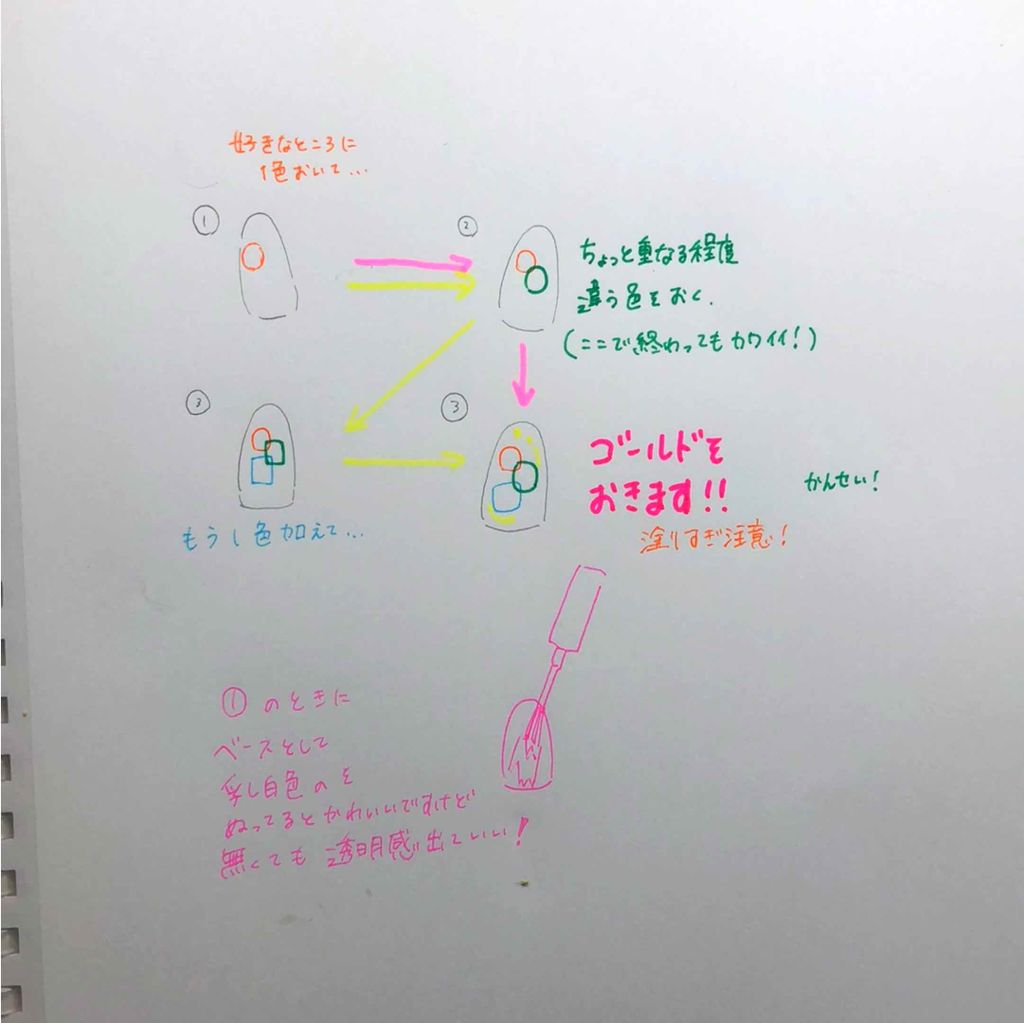 好きなところに
1色おいて...
①
②
ちょっと重なる程度
違う色をおく.
(ここで終わってもカワイイ!)
③
もう1色加えて...
③
ゴールドを
おきます!!
かんせい!
塗りすぎ注意!
①のときに
ベースとして
乳白色のを
ぬってるとかわいいですけど
無くても透明感出ていい!